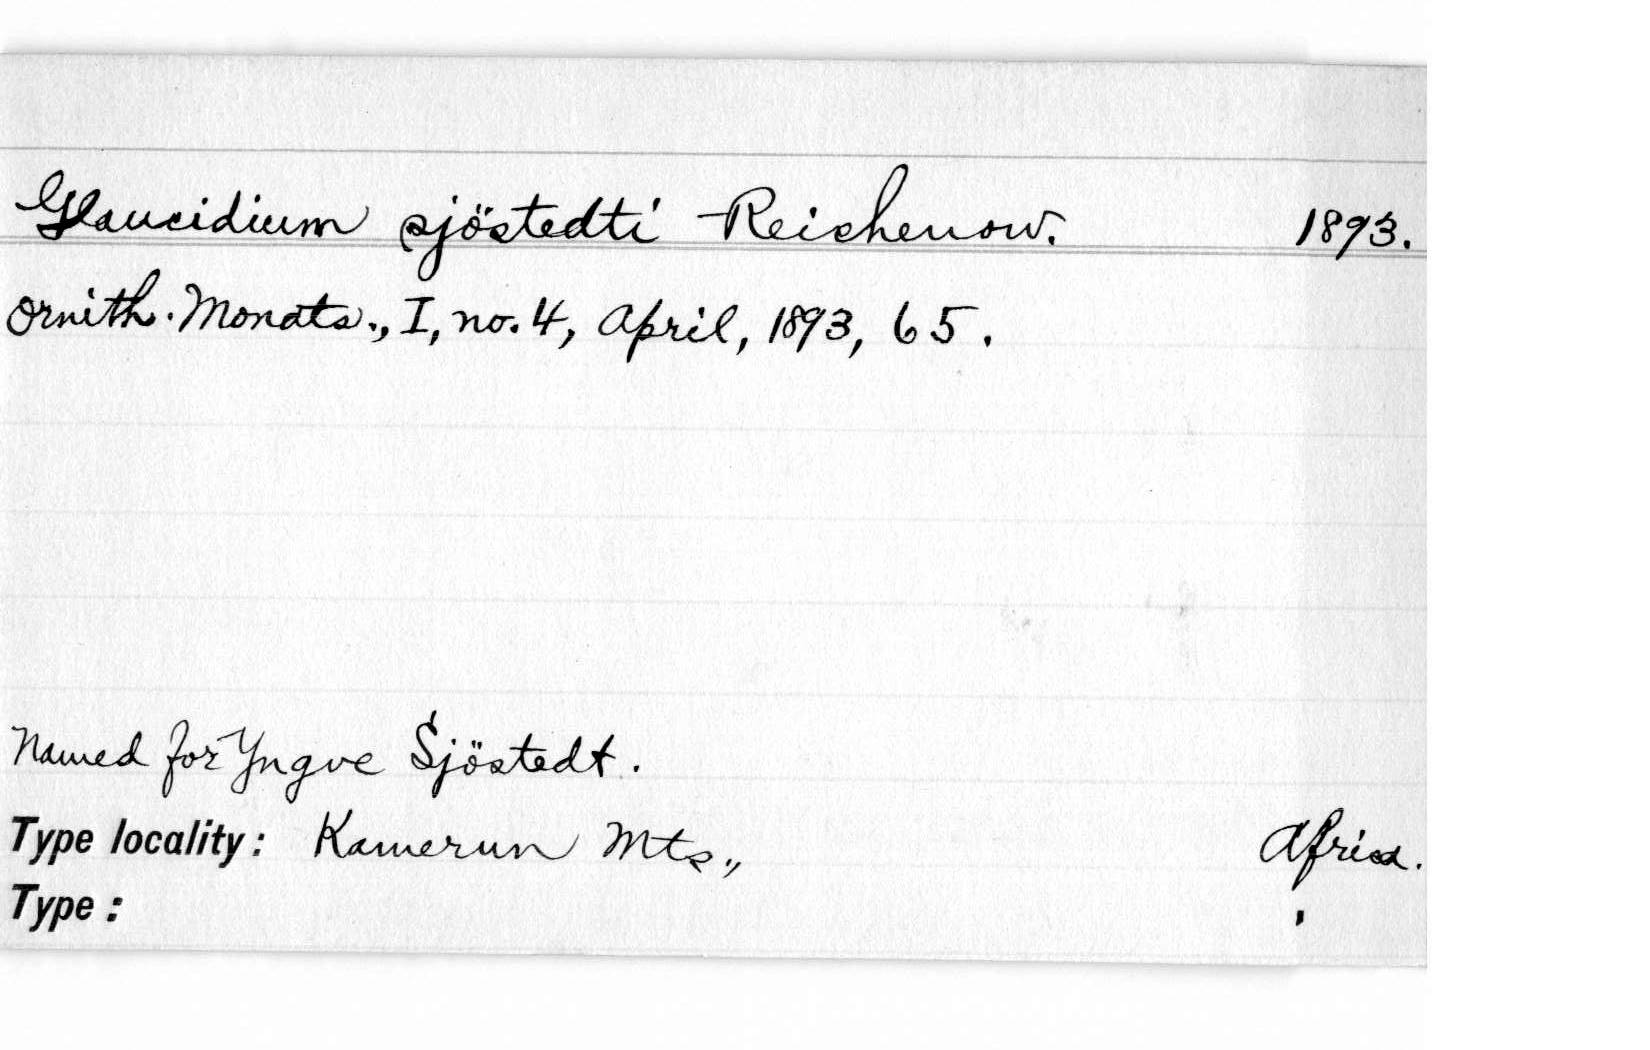 Glaucidium sjöstedti Reichenow. 1893.
Ornith. Monats., I, no. 4, April, 1893, 65.
Named for Yngve Sjöstedt.
Type locality: Kamerun Mts., Africa.
Type: